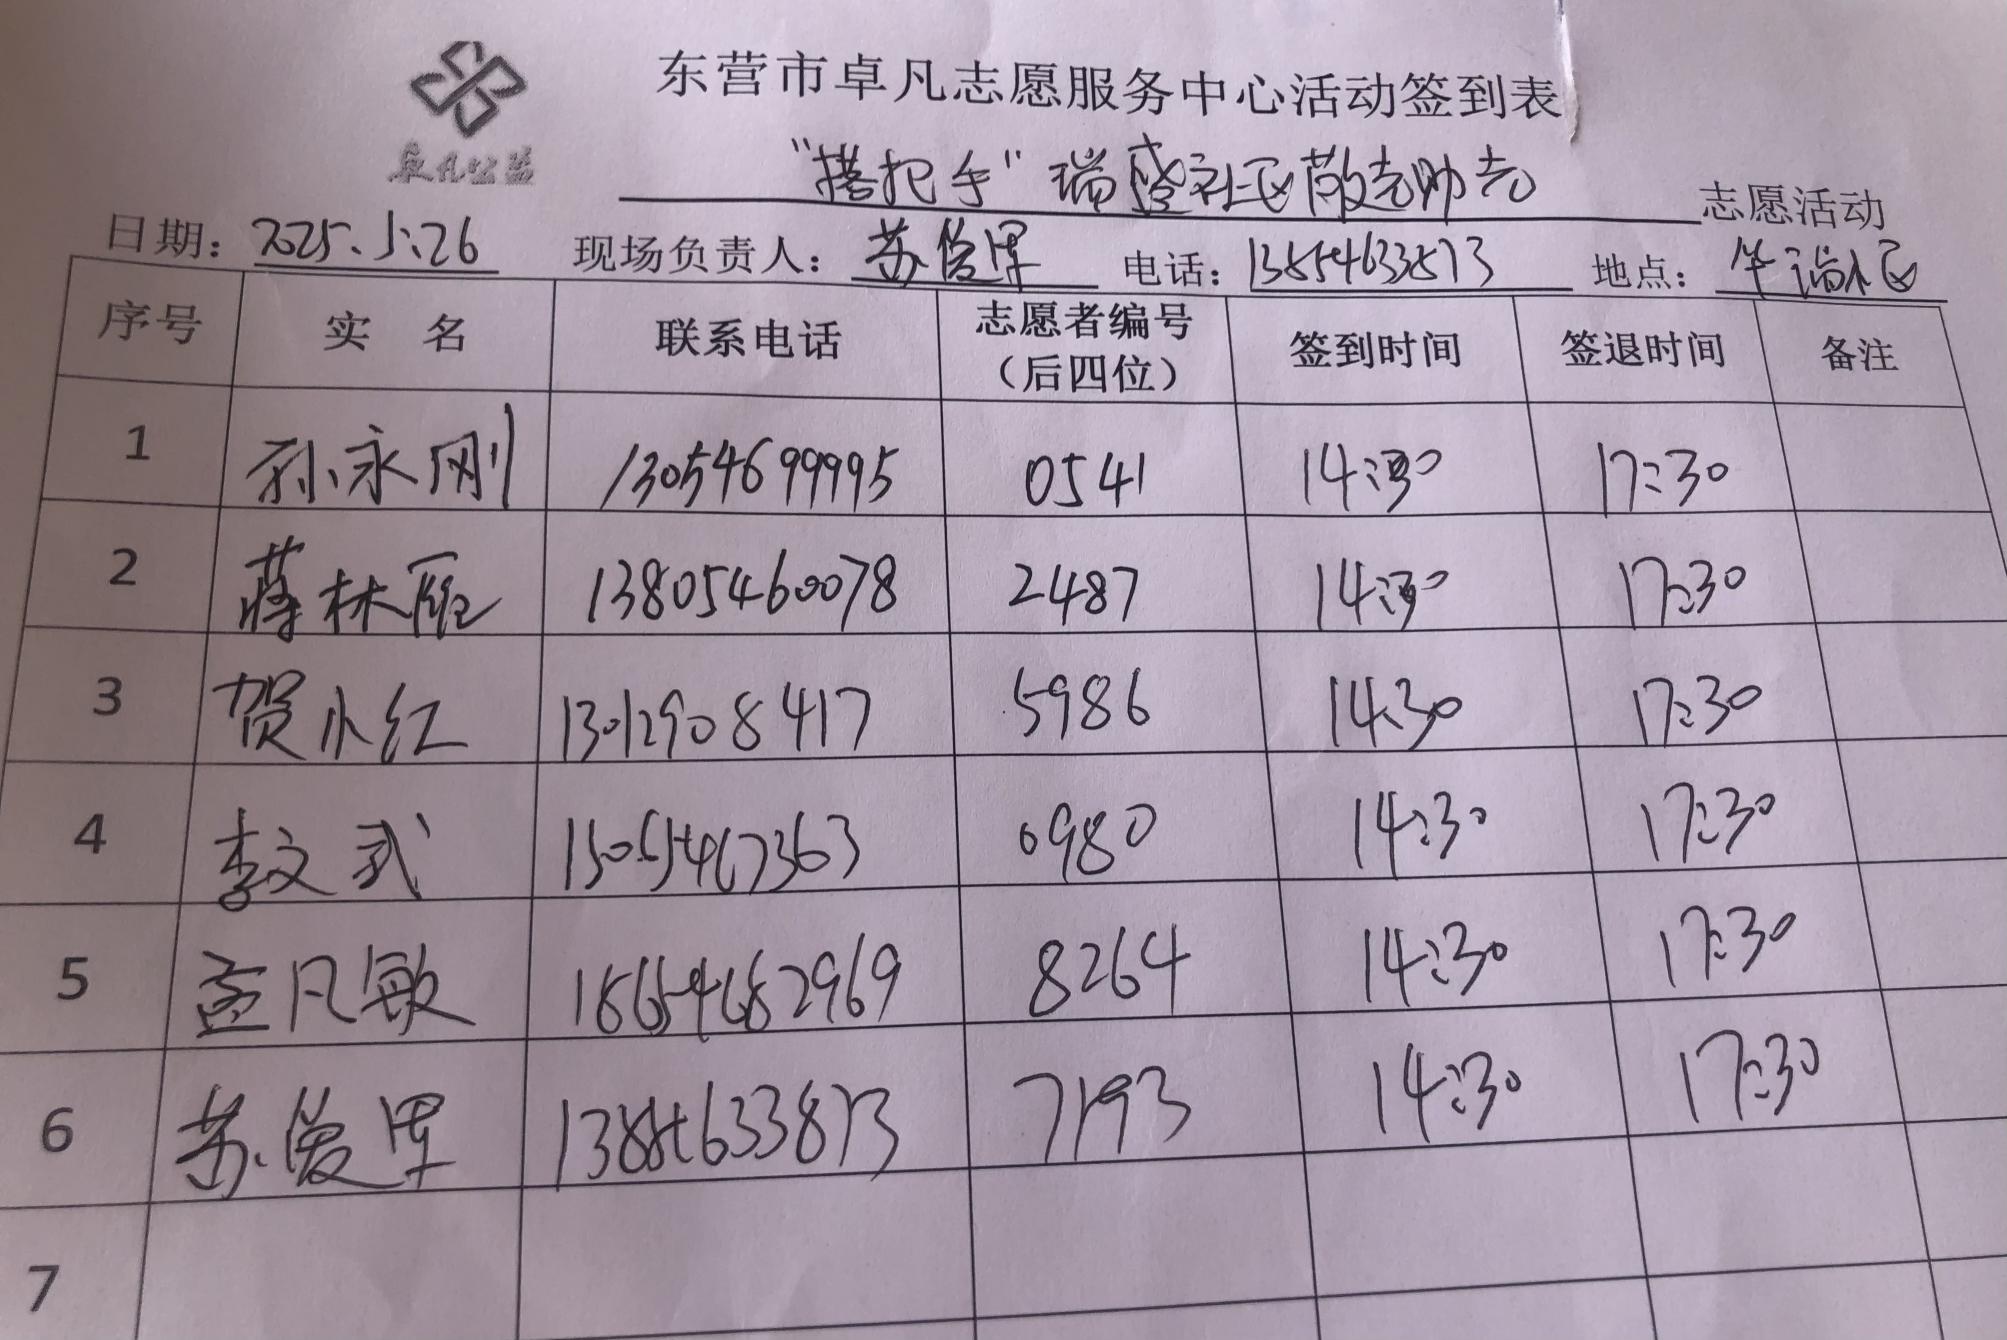 东营市卓凡志愿服务中心活动签到表
卓凡公益
“搭把手”瑞盛社区敬老助老 志愿活动
日期：2025.5.26 现场负责人：苏俊军 电话： 地点：
序号 实 名 联系电话 志愿者编号（后四位） 签到时间 签退时间 备注
1 孙永刚 13054699995 0541 14:30 17:30
2 蒋林雁 13805460078 2487 14:30 17:30
3 贺小红 13012908417 5986 14:30 17:30
4 李文武 15055467363 0980 14:30 17:30
5 孟凡敏 18654682969 8264 14:30 17:30
6 苏俊军 7193 14:30 17:30
7